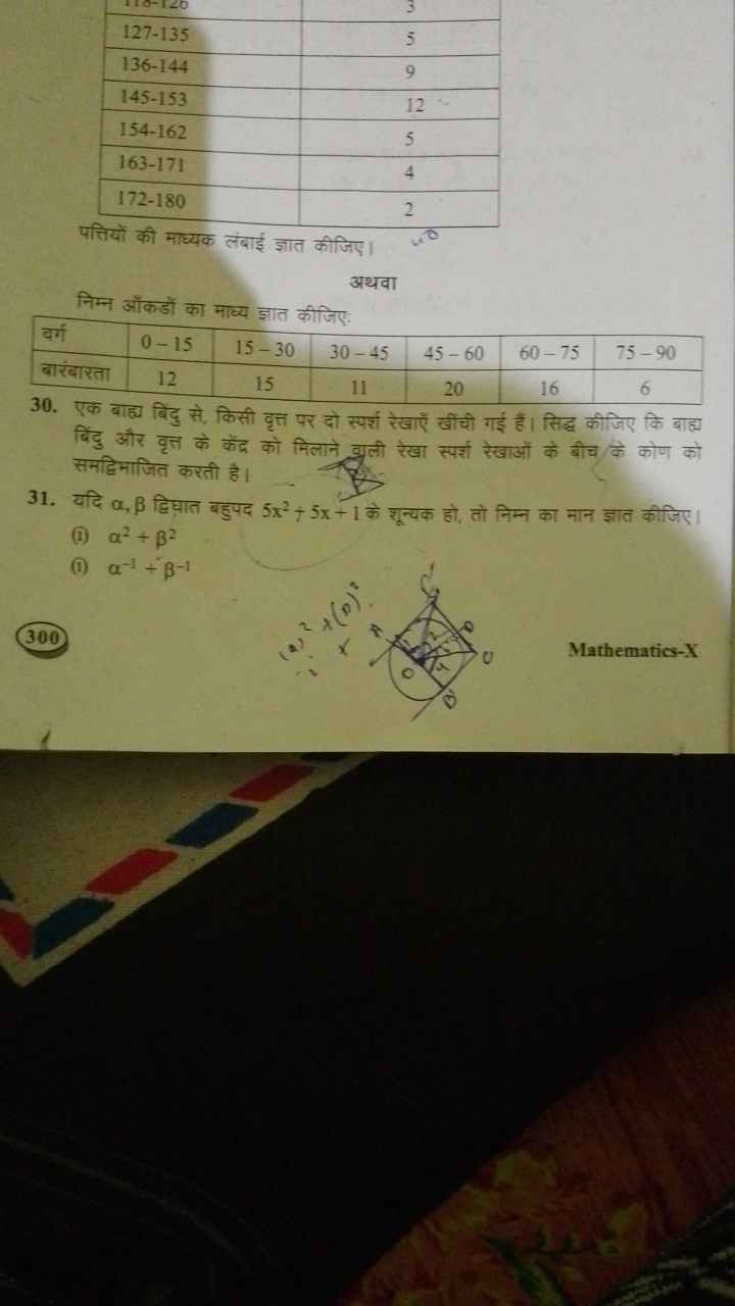 118-126 3
127-135 5
136-144 9
145-153 12
154-162 5
163-171 4
172-180 2
पत्तियों की माध्यक लंबाई ज्ञात कीजिए। 40
अथवा
निम्न आँकडों का माध्य ज्ञात कीजिएः
वर्ग 0 – 15 15 – 30 30 – 45 45 – 60 60 – 75 75 – 90
बारंबारता 12 15 11 20 16 6
30. एक बाह्य बिंदु से, किसी वृत्त पर दो स्पर्श रेखाएँ खींची गई हैं। सिद्ध कीजिए कि बाह्य
बिंदु और वृत्त के केंद्र को मिलाने वाली रेखा स्पर्श रेखाओं के बीच के कोण को
समद्विभाजित करती है।
31. यदि α, β द्विघात बहुपद 5x² + 5x + 1 के शून्यक हो, तो निम्न का मान ज्ञात कीजिए।
(i) α² + β²
(i) α⁻¹ + β⁻¹
300
Mathematics-X